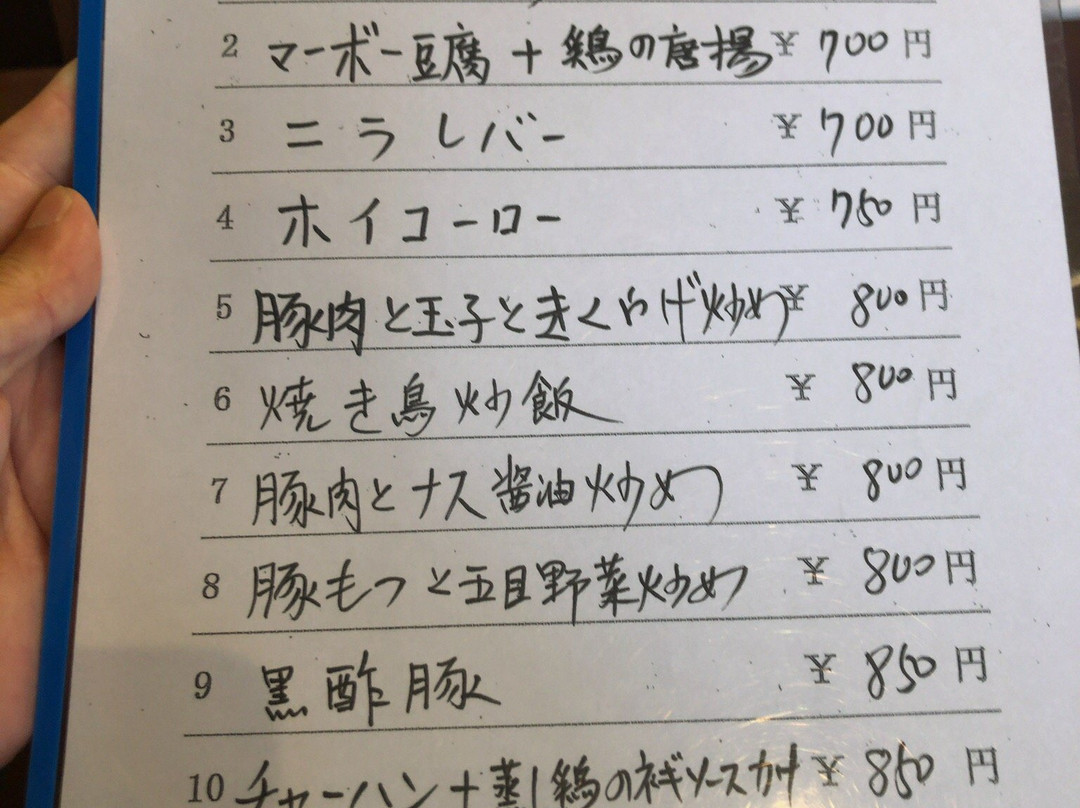 2 マーボー豆腐 + 鶏の唐揚 ¥ 700 円
3 ニラレバー ¥ 700 円
4 ホイコーロー ¥ 750 円
5 豚肉と玉子ときくらげ炒め ¥ 800 円
6 焼き鳥炒飯 ¥ 800 円
7 豚肉とナス醤油炒め ¥ 800 円
8 豚もつと五目野菜炒め ¥ 800 円
9 黒酢豚 ¥ 850 円
10 チャーハン+蒸し鶏のネギソースカケ ¥ 850 円